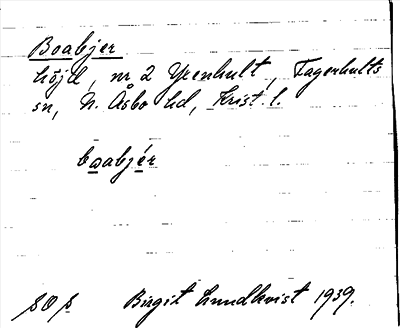 Boabjer
höjd, nr 2 Yxenhult, Fagerhults
sn, N. Åsbo hd, Krist. l.
boabjér
Birgit Lundkvist 1939.